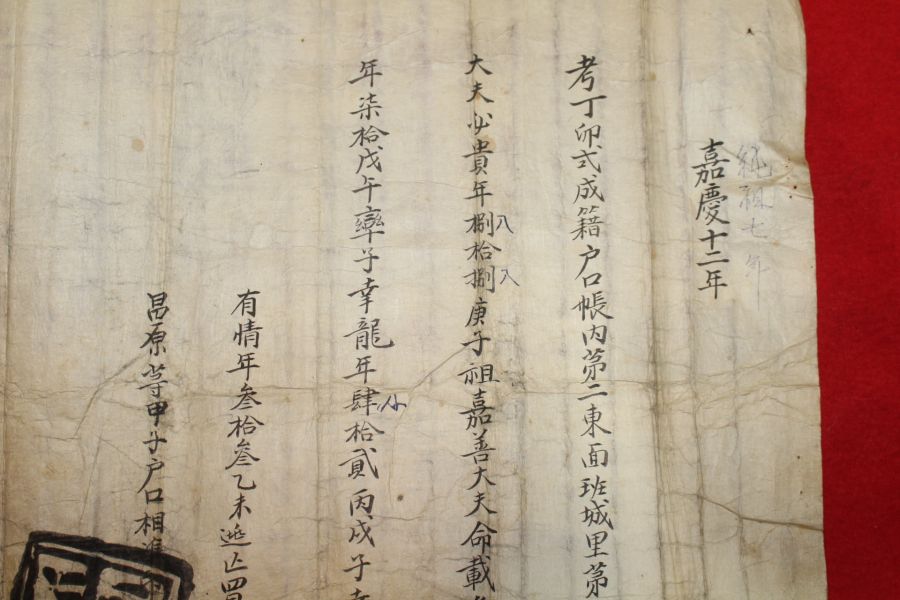 純祖七年
嘉慶十二年
考丁卯式成籍户口帳内第二東面班城里第
大夫必貴年捌拾捌庚子祖嘉善大夫命載
八 八
年柒拾戊午率子幸龍年肆拾貳丙戌子
有情年叄拾叄乙未逃亡四
昌原等甲子户口相準